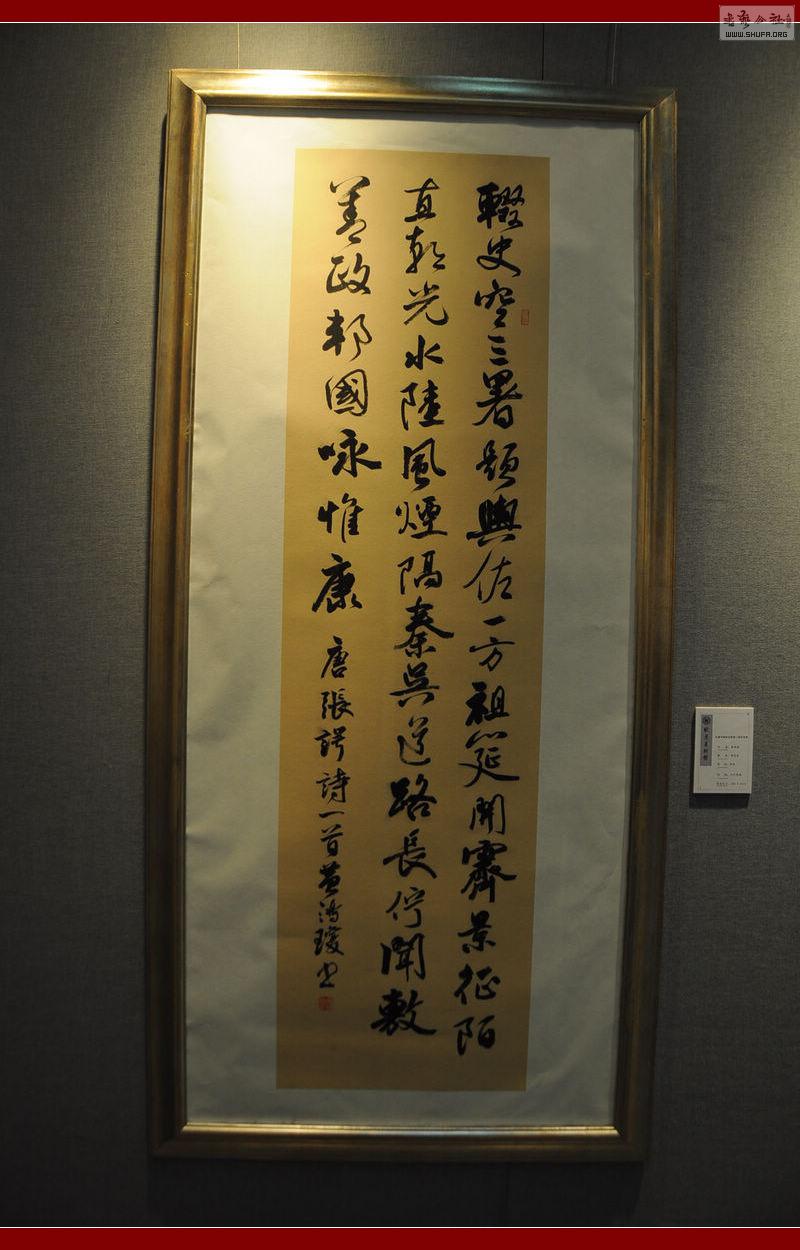 輟史空三署題輿佐一方祖筵開霽景征陌
直朝光水陸風煙隔秦吳道路長佇聞敷
善政邦國咏惟康
唐張諤詩一首黃鴻瓊書
WWW.SHUFA.ORG